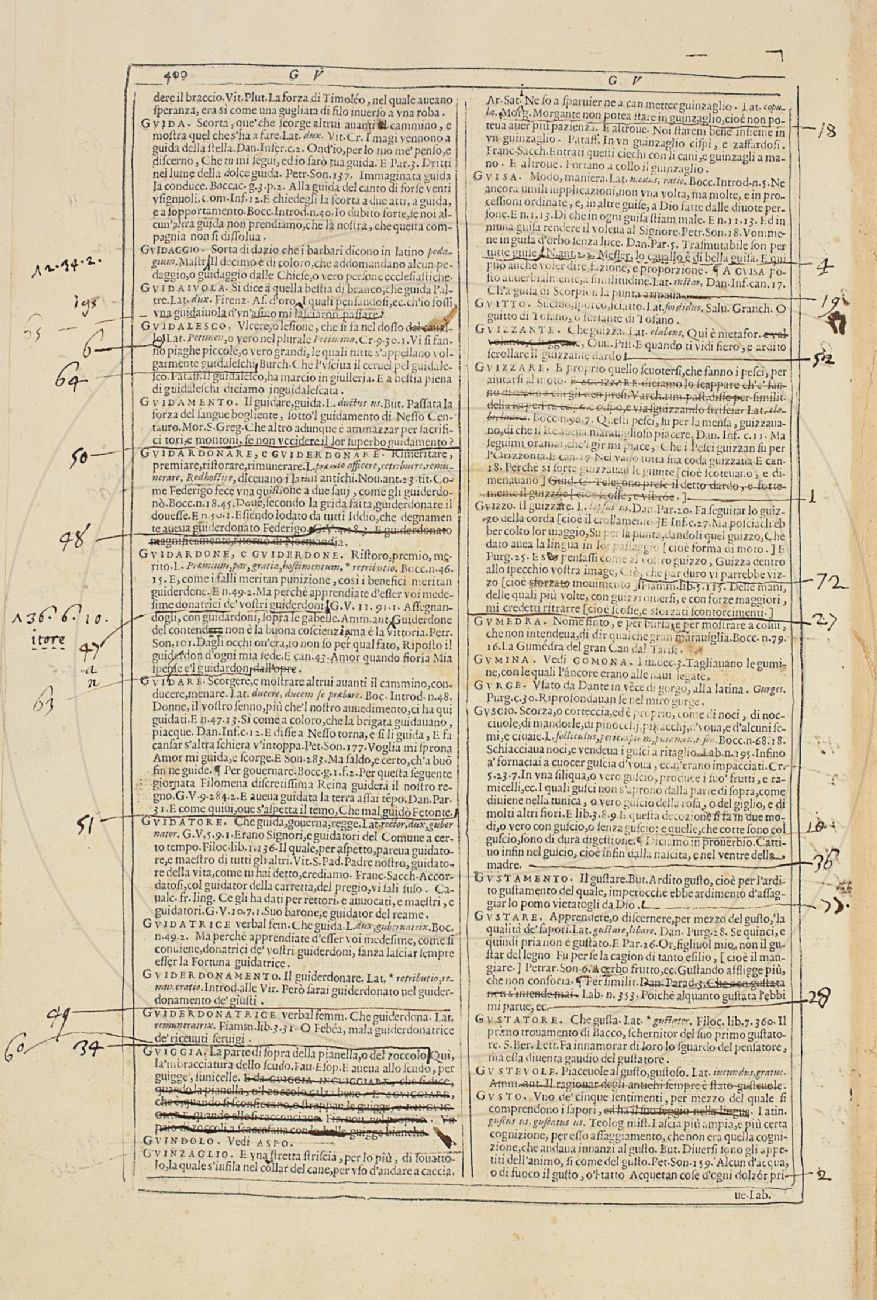 400 G V
dere il braccio. Vit. Plut. La forza di Timoléo, nel quale aueano
speranza, era sì come vna gugliata di filo inuerso a vna roba.
GVIDA. Scorta, que'che scorge altrui auanti il cammino, e
mostra quel che s'ha a fare. Lat. dux. Vit. Cr. I magi vennono a
guida della stella. Dan. Inf. c. 2. Ond'io, per lo tuo me' penso, e
discerno, Che tu mi segui, ed io sarò tua guida. E Par. 3. Dritti
nel lume della dolce guida. Petr. Son. 137. Immaginata guida
la conduce. Boccac. g. 3. p. 2. Alla guida del canto di forse venti
vsignuoli. Com. Inf. 12. E chiedegli la scorta a due atti, a guida,
e a sopportamento. Bocc. Introd. n. 40. Io dubito forte, se noi al-
cun'altra guida non prendiamo, che la nostra, che questa com-
pagnia non si dissolua.
GVIDAGGIO. Sorta di dazio che i barbari dicono in latino peda-
gium. Mastr. Il decimo è di coloro, che addomandano alcun pe-
daggio, o guidaggio dalle Chiese, o vero persone ecclesiastiche.
GVIDAIVOLA. Si dice a quella bestia di branco, che guida l'al-
tre. Lat. dux. Firenz. As. d'oro, I quali pensandosi, ec. ch'io fossi
vna guidaiuola d'vn'asino mi lasciaron passare.
GVIDALESCO. Vlcere, o lesione, che si fa nel dosso
lo. Lat. Petimen, o vero nel plurale Petimina, Cr. 9. 30. 1. Vi si fan-
no piaghe piccole, o vero grandi, le quali tutte s'appellano vol-
garmente guidaleschi. Burch. Che l'vscìua il ceruel pel guidale-
sco. Pataff. Il guidalesco, ha marcio in giulleria. E a bestia piena
di guidaleschi diciamo inguidalescata.
GVIDAMENTO. Il guidare, guida. L. ductus us. But. Passata la
forza del sangue bogliente, sotto'l guidamento di Nesso Cen-
tauro. Mor. S. Greg. Che altro adunque è ammazzar per sacrifi-
ci tori, e montoni, se non vccidere il lor superbo guidamento?
GVIDARDONARE, e GVIDERDONARE. Rimeritare,
premiare, ristorare, rimunerare. L. præmio afficere, retribuere, remu-
nerare, Redhostire, diceuano i latini antichi. Nou. ant. 23 tit. Co-
me Federigo fece vna quistione a due saui, come gli guiderdo-
nò. Bocc. n. 18. 45. Doue, secondo la grida fatta, guiderdonare il
douesse. E n. 50. 1. Essendo lodato da tutti Iddio, che degnamen
te aueua guiderdonato Federigo. G. V. 4. 18. 3. E guiderdonato
magnificamente, ritornò di Normandia.
GVIDARDONE, e GVIDERDONE. Ristoro, premio, me-
rito. L. Præmium, par, gratia, hostimentum, * retributio. Bocc. n. 46.
15. E, come i falli meritan punizione, così i benefici meritan
guiderdone. E n. 49. 2. Ma perchè apprendiate d'esser voi mede-
sime donatrici de'vostri guiderdoni. G. V. 11. 91. 1. Assegnan-
dogli, con guidardoni, sopra le gabelle. Amm. ant. Guiderdone
del non è la buona coscienzia, ma è la Vittoria. Petr.
Son. 101. Dagli occhi vn'ora, to non so per qual fato, Riposto il
guiderdon d'ogni mia fede. E can. 43. Amor quando fioria Mia
spense e'l guidardon dall'opre.
GVIDARE. Scorgere, e mostrare altrui auanti il cammino, con-
ducere, menare. Lat. ducere, ducem se præbere. Boc. Introd. n. 48.
Donne, il vostro senno, più che'l nostro auuedimento, ci ha qui
guidati. E n. 47. 13. Sì come a coloro, che la brigata guidauano,
piacque. Dan. Inf. c. 12. E disse a Nesso torna, e sì li guida, E fa
cansar s'altra schiera v'intoppa. Pet. Son. 177. Voglia mi sprona
Amor mi guida, e scorge. E Son. 283. Ma saldo, e certo, ch'a buõ
fin ne guide. ¶ Per gouernare. Bocc. g. 1. f. 2. Per questa seguente
giornata Filomena discretissima Reina guiderà il nostro re-
gno. G. V. 9. 284. 2. E aueua guidata la terra assai tẽpo. Dan. Par.
31. E come quiui, oue s'aspetta il temo, Che mal guidò Fetonte.
GVIDATORE. Che guida, gouerna, regge. Lat. rector, dux, guber
nator. G. V. 5. 9. 1. Erano Signori, e guidatori del Comune a cer-
to tempo. Filoc. lib. 1. 136. Il quale, per aspetto, pareua guidato-
re, e maestro di tutti gli altri. Vit. S. Pad. Padre nostro, guidato-
re della vita, come tu hai detto, crediamo. Franc. Sacch. Accor-
datosi, col guidator della carretta, del pregio, vi salì suso. Ca-
ualc. fr. ling. Ce gli ha dati per rettori, e auuocati, e maestri, e
guidatori. G. V. 10. 7. 1. Suo barone, e guidator del reame.
GVIDATRICE verbal fem. Che guida. L. dux, gubernatrix. Boc.
n. 49. 2. Ma perchè apprendiate d'esser voi medesime, come si
conuiene, donatrici de'vostri guiderdoni, sanza lasciar sempre
esser la Fortuna guidatrice.
GVIDERDONAMENTO. Il guiderdonare. Lat. * retributio, re-
muneratio. Introd. alle Vir. Però sarai guiderdonato nel guider-
donamento de'giusti.
GVIDERDONATRICE verbal femm. Che guiderdona. Lat.
remuneratrix. Fiamm. lib. 3. 31. O Febéa, mala guiderdonatrice
de'riceuuti seruigi.
GVIGGIA. La parte di sopra della pianella, o del zoccolo. Qui,
la'mbracciatura dello scudo. Fau. Esop. E aueua allo scudo, per
guigge, funicelle.
GVINDOLO. Vedi ASPO.
GVINZAGLIO. E vna stretta striscia, per lo più, di souatto-
lo, la quale s'infila nel collar del cane, per vso d'andare a caccia,
12. 34. 2.
igs
6
64
50
48
136. 6. 10.
itore
47
63
51
49
60
34
G V
Ar. Sat. Ne so a sparuier ne a can metter guinzaglio. Lat. copu-
la. Morg. Morgante non potea stare in guinzaglio, cioè non po-
teua auer più pazienza. E altroue. Noi staremo bene insieme in
vn guinzaglio. Pataff. In vn guinzaglio cispi, e zaffardosi.
Franc. Sacch. Entrati questi ciechi con li cani, e guinzagli a ma-
no. E altroue. Portano a collo il guinzaglio.
GVISA. Modo, maniera. Lat. modus, ratio. Bocc. Introd. n. 5. Ne
ancora vmili supplicazioni, non vna volta, ma molte, e in pro-
cessioni ordinate, e, in altre guise, a Dio fatte dalle diuote per-
sone. E n. 1. 13. Di che in ogni guisa stiam male. E n. 11. 13. Ed in
niuna guisa rendere il voleua al Signore. Petr. Son. 18. Vomme-
ne in guisa d'orbo senza luce. Dan. Par. 5. Trasmutabile son per
tutte guise. Nant. 2. 2. Messer, lo cauallo è di bella guisa. E qui
può anche voler dire, fazione, e proporzione. ¶ A GVISA Po-
sto auuerbialmente, a similitudine. Lat. instar, Dan. Inf. can. 17.
Ch'a guisa di Scorpion la punta armaua.
GVITTO. Sucido, sporco, sciatto. Lat. sordidus, Salu. Granch. O
guitto di Tofano, o furfante di Tofano.
GVIZZANTE. Che guizza. Lat. elabens, Qui è metafor.
Ouu. Pist. E quando ti vidi fiero, e ardito
scrollare il guizzante dardo.
GVIZZARE. È proprio quello scuotersi, che fanno i pesci, per
aiutarsi al moto.
Bocc. n. 96. 7. Questi pesci, su per la mensa, guizzaua-
no, di che il Re aueua marauiglioso piacere. Dan. Inf. c. 11. Ma
seguimi oramai, che'l gir mi piace, Che i Pesci guizzan su per
l'Orizzonta. E can. 17. Nel vano tutta sua coda guizzaua. E can-
18. Perche sì forte guizzauan le giunte [cioè scoteuano, e di-
menauano]
GVIZZO. Il guizzare. L. lapsus us. Dan. Par. 20. Fa seguitar lo guiz-
zo della corda [cioè il crollamento.] E Inf. c. 27. Ma poscia ch'eb
ber colto lor viaggio, Su per la punta, dandoli quel guizzo, Che
dato auea la lingua in lor passaggio [cioè forma di moto.] E
Purg. 25. E se pensassi come al vostro guizzo, Guizza dentro
allo specchio vostra image, Ciò, che par duro vi parrebbe viz-
zo [cioè sforzato mouimento.] Fiamm. lib. 5. 115. Delle mani,
delle quali più volte, con guizzi diuersi, e con forze maggiori,
mi credetti ritrarre [cioè scosse, e storzati scontorcimenti.]
GVMEDRA. Nome finto, e per burla, e per mostrare a colui,
che non intendeua, di dir qualche gran marauiglia. Bocc. n. 79.
16. La Gumedra del gran Can dal Tarisi.
GVMINA. Vedi GOMONA. Tagliauano le gumi-
ne, con le quali l'áncore erano alle naui legate.
GVRGE. Vsato da Dante in vece di gorgo, alla latina. Gurges.
Purg. c. 30. Riprofondauan se nel miro gurge.
GVSCIO. Scorza, o corteccia, ed è proprio, come di noci, di noc-
ciuole, di mandorle, di pinocchi, pistacchj, d'voua, e d'alcuni se-
mi, e ciuaie. Bocc. n. 68. 18.
Schiacciaua noci, e vendeua i gusci a ritaglio. Lab. n. 195. Infino
a'fornaciai a cuocer guscia d'voua, ec. n'erano impacciati. Cr.
5. 23. 7. In vna siliqua, o vero guscio, produce i suo' frutti, e ra-
micelli, ec. I quali gusci non s'aprono dalla parte di sopra, come
diuiene nella tunica, o vero guscio della rosa, o del giglio, e di
molti altri fiori. E lib. 3. 8. 9. E questa decozione si fa in due mo-
di, o vero con guscio, o senza guscio: e quelle, che corte sono col
guscio, sono di dura digestione. ¶ Diciamo in prouerbio. Catti-
uo infin nel guscio, cioè infin dalla nascita, e nel ventre della
madre.
GVSTAMENTO. Il gustare. But. Ardito gusto, cioè per l'ardi-
to gustamento del quale, imperocchè ebbe ardimento d'assag-
giar lo pomo vietatogli da Dio.
GVSTARE. Apprendere, o discernere, per mezzo del gusto, la
qualità de'sapori. Lat. gustare, libare. Dan. Purg. 28. Se quinci, e
quindi pria non è gustato. E Par. 26. Or, figliuol mio, non il gu-
star del legno Fu per se la cagion di tanto esilio, [cioè il man-
giare.] Petrar. Son. 6. Acerbo frutto, ec. Gustando affligge più,
che non conforta. ¶ Per similit. Dan. Parad. 3. Che non gustata
non s'intende mai. Lab. n. 353. Poichè alquanto gustata l'ebbi
mi parue, ec.
GVSTATORE. Che gusta. Lat. * gustator. Filoc. lib. 7. 360. Il
primo trouamento di Bacco, schernitor del suo primo gustato-
re. S. Ber. Lett. Fa innamorar di loro lo sguardo del pensatore,
ma essa diuenta gaudio del gustatore.
GVSTEVOLE. Piaceuole al gusto, gustoso. Lat. iucundus, gratus.
Amm. ant. Il ragionar degli antichi sempre è stato gusteuole.
GVSTO. Vno de'cinque sentimenti, per mezzo del quale si
comprendono i sapori, ed ha il suo seggio nella lingua. Latin.
gustus us, gustatus us. Teolog. mist. Lascia più ampia, e più certa
cognizione, per esso assaggiamento, che non era quella cogni-
zione, che andaua innanzi al gusto. But. Diuersi sono gli appe-
titi dell'animo, sì come del gusto. Pet. Son. 159. Alcun d'acqua,
o di fuoco il gusto, o'l tatto Acquetan cose d'ogni dolzór pri-
ue. Lab.
18
4
19
52
1
72
27
10
36
77
28
2